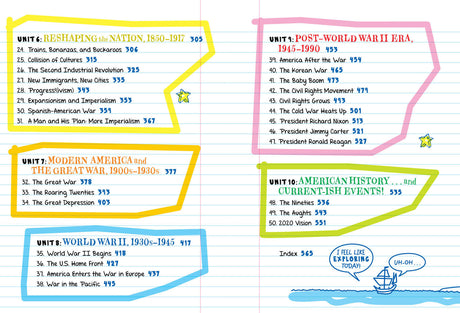 UNIT 6: RESHAPING the NATION, 1850–1917 305
24. Trains, Bonanzas, and Buckaroos 306
25. Collision of Cultures 315
26. The Second Industrial Revolution 325
27. New Immigrants, New Cities 335
28. Progress(ivism) 343
29. Expansionism and Imperialism 353
30. Spanish-American War 359
31. A Man and His Plan: More Imperialism 367
UNIT 7: MODERN AMERICA and
THE GREAT WAR, 1900s–1930s 377
32. The Great War 378
33. The Roaring Twenties 393
34. The Great Depression 403
UNIT 8: WORLD WAR II, 1930s–1945 417
35. World War II Begins 418
36. The U.S. Home Front 427
37. America Enters the War in Europe 437
38. War in the Pacific 445
UNIT 9: POST–WORLD WAR II ERA,
1945–1990 453
39. America After the War 454
40. The Korean War 465
41. The Baby Boom 473
42. The Civil Rights Movement 479
43. Civil Rights Grows 493
44. The Cold War Heats Up 501
45. President Richard Nixon 513
46. President Jimmy Carter 521
47. President Ronald Reagan 527
UNIT 10: AMERICAN HISTORY . . . and
CURRENT-ISH EVENTS! 535
48. The Nineties 536
49. The Aughts 543
50. 2020 Vision 551
Index 565
I FEEL LIKE
EXPLORING
TODAY!
UH-OH . . .